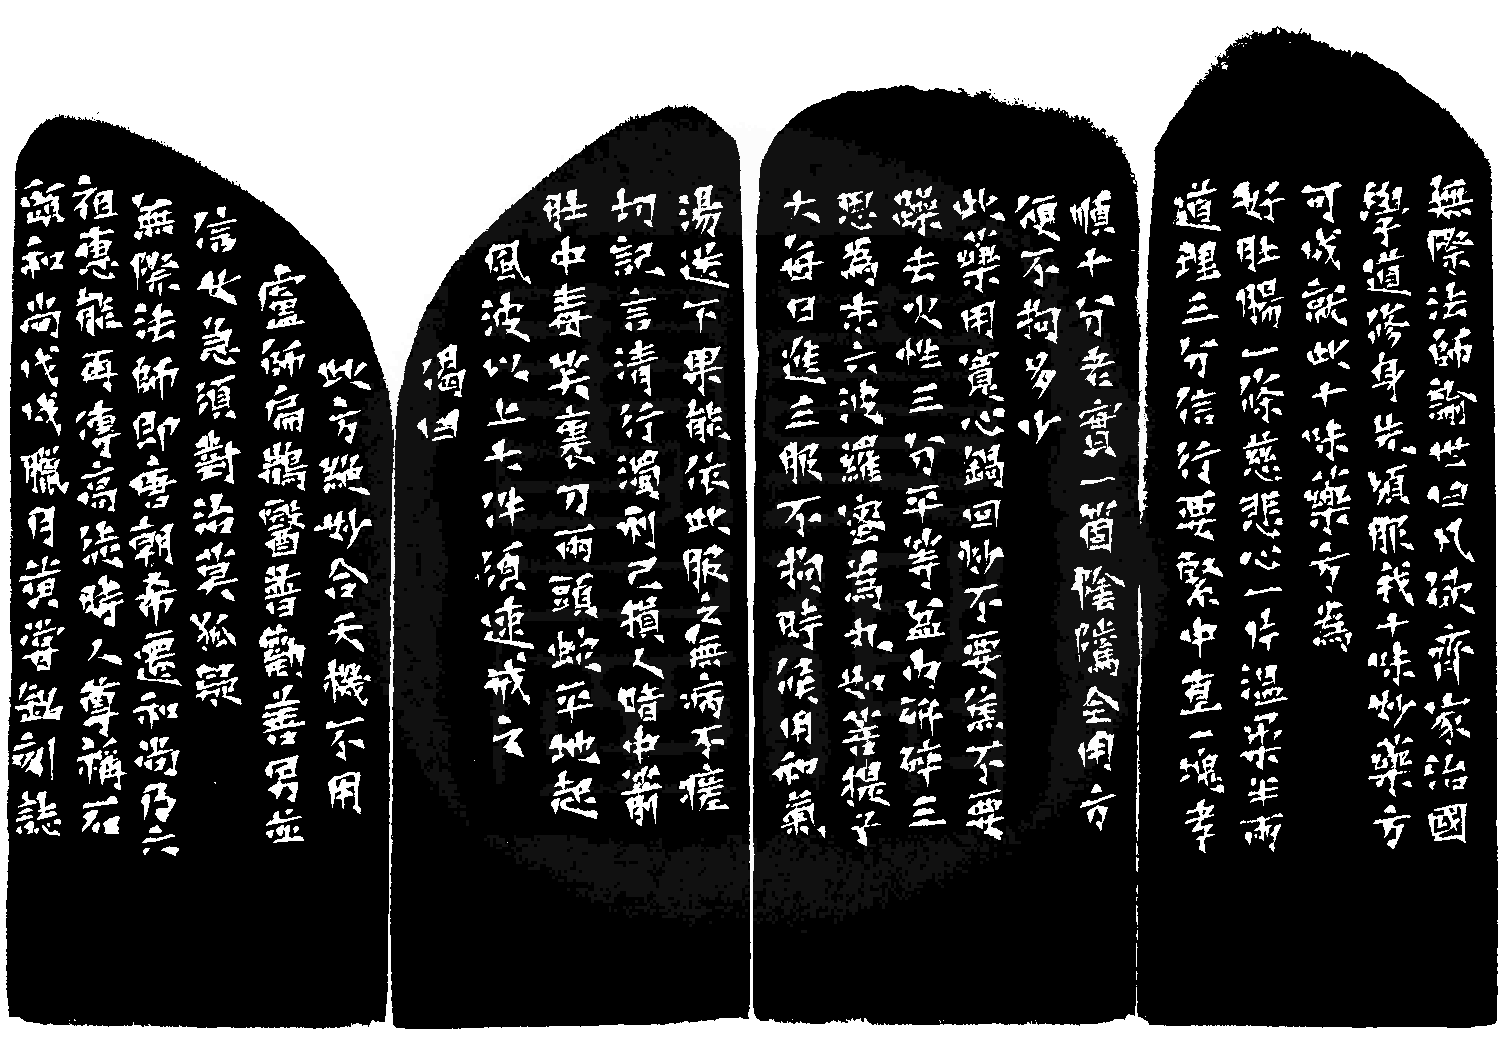 無際法師諭世曰凡欲齊家治國
學道修身先須服我十味妙藥方
可成就此十味藥方為
好肚腸一條慈悲心一片溫柔半兩
道理三分信行要緊中直一塊孝
順十分老實一箇陰隲全用方
便不拘多少
此藥用寬心鍋內炒不要焦不要
躁去火性三分平等盆內研碎三
思為末六波羅密為丸如菩提子
大每日進三服不拘時候用和氣
湯送下果能依此服之無病不瘥
切記言清行濁利己損人暗中箭
肚中毒笑裏刀兩頭蛇平地起
風波以上七件須速戒之
偈曰
此方絕妙合天機不用
盧師扁鵲醫普勸善男並
信女急須對治莫狐疑
無際法師即唐朝希遷和尚乃六
祖惠能再傳高徒時人尊稱石
頭和尚戊戌臘月黃嘗銘刻誌